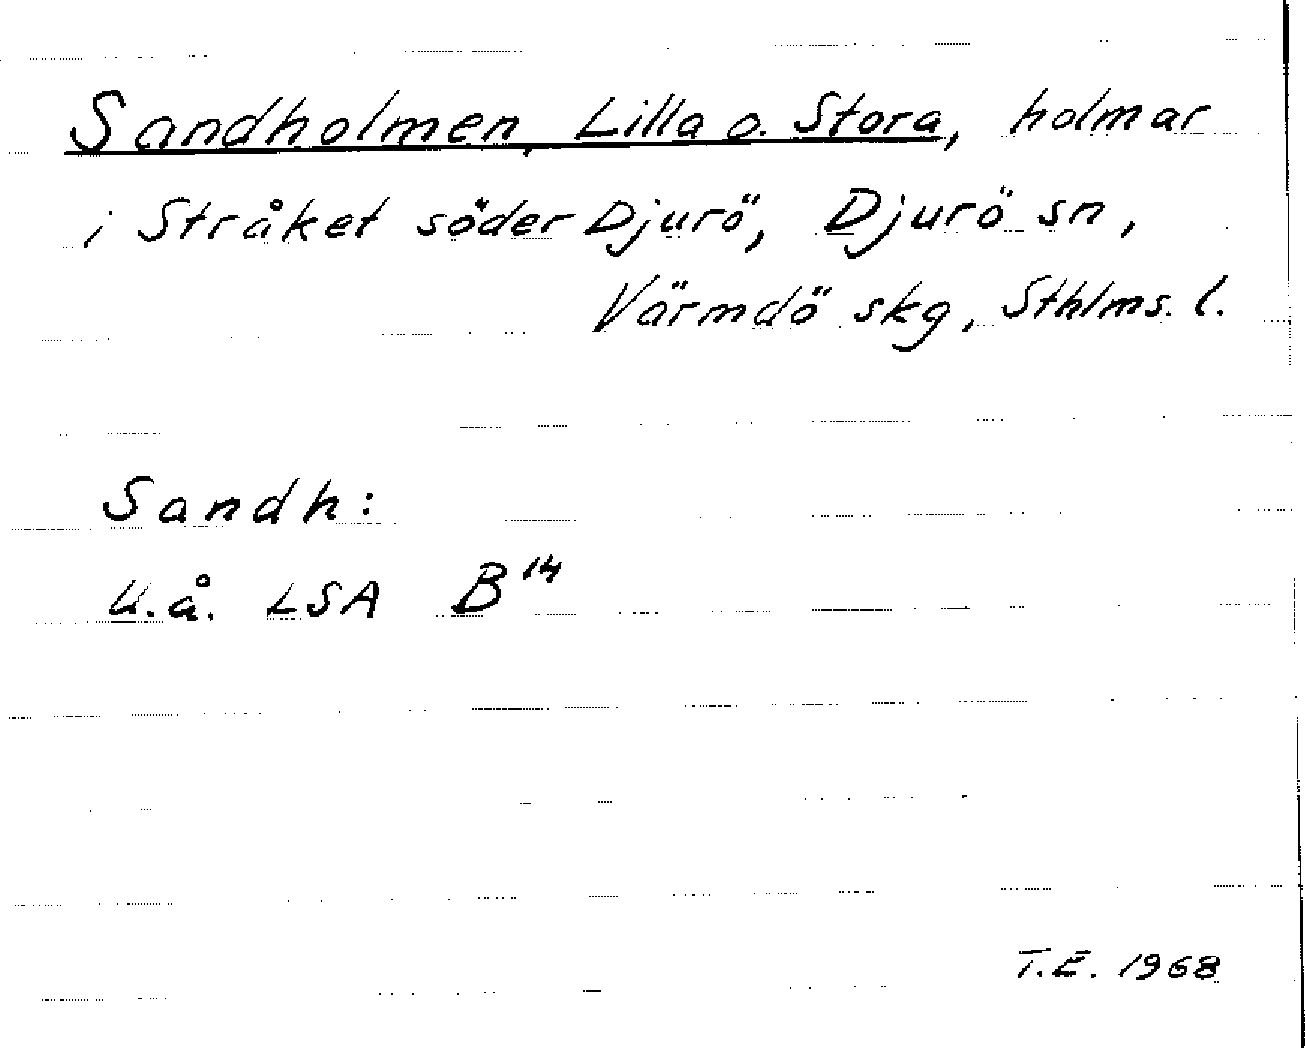 Sandholmen, Lilla o. Stora, holmar
i Stråket söder Djurö, Djurö sn,
Värmdö skg, Sthlms. l.
Sandh:
U.å. LSA B14
T.E. 1968